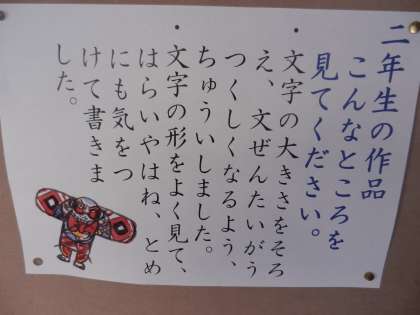 二年生の作品
こんなところを
見てください。
・文字の大きさをそろ
え、文ぜんたいがう
つくしくなるよう、
ちゅういしました。
・文字の形をよく見て、
はらいやはね、とめ
にも気をつ
けて書きま
した。